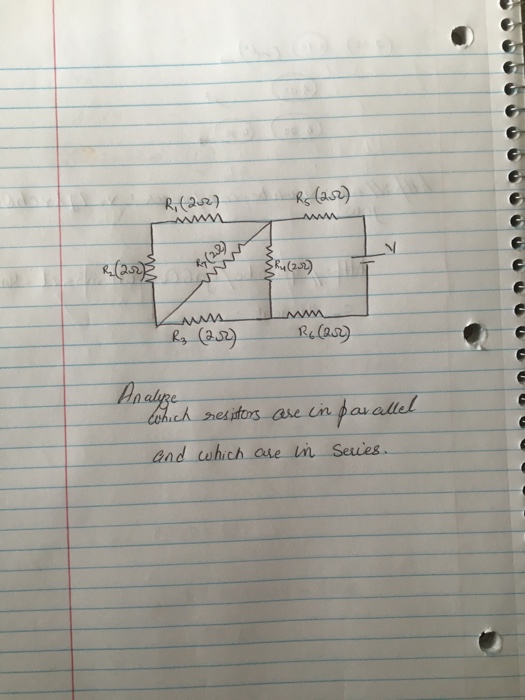 R₁(2Ω) R₅ (2Ω)
R₂(2Ω) R₇(2Ω) R₄(2Ω) V
R₃ (2Ω) R₆(2Ω)
Analyze
which resistors are in parallel
and which are in series.